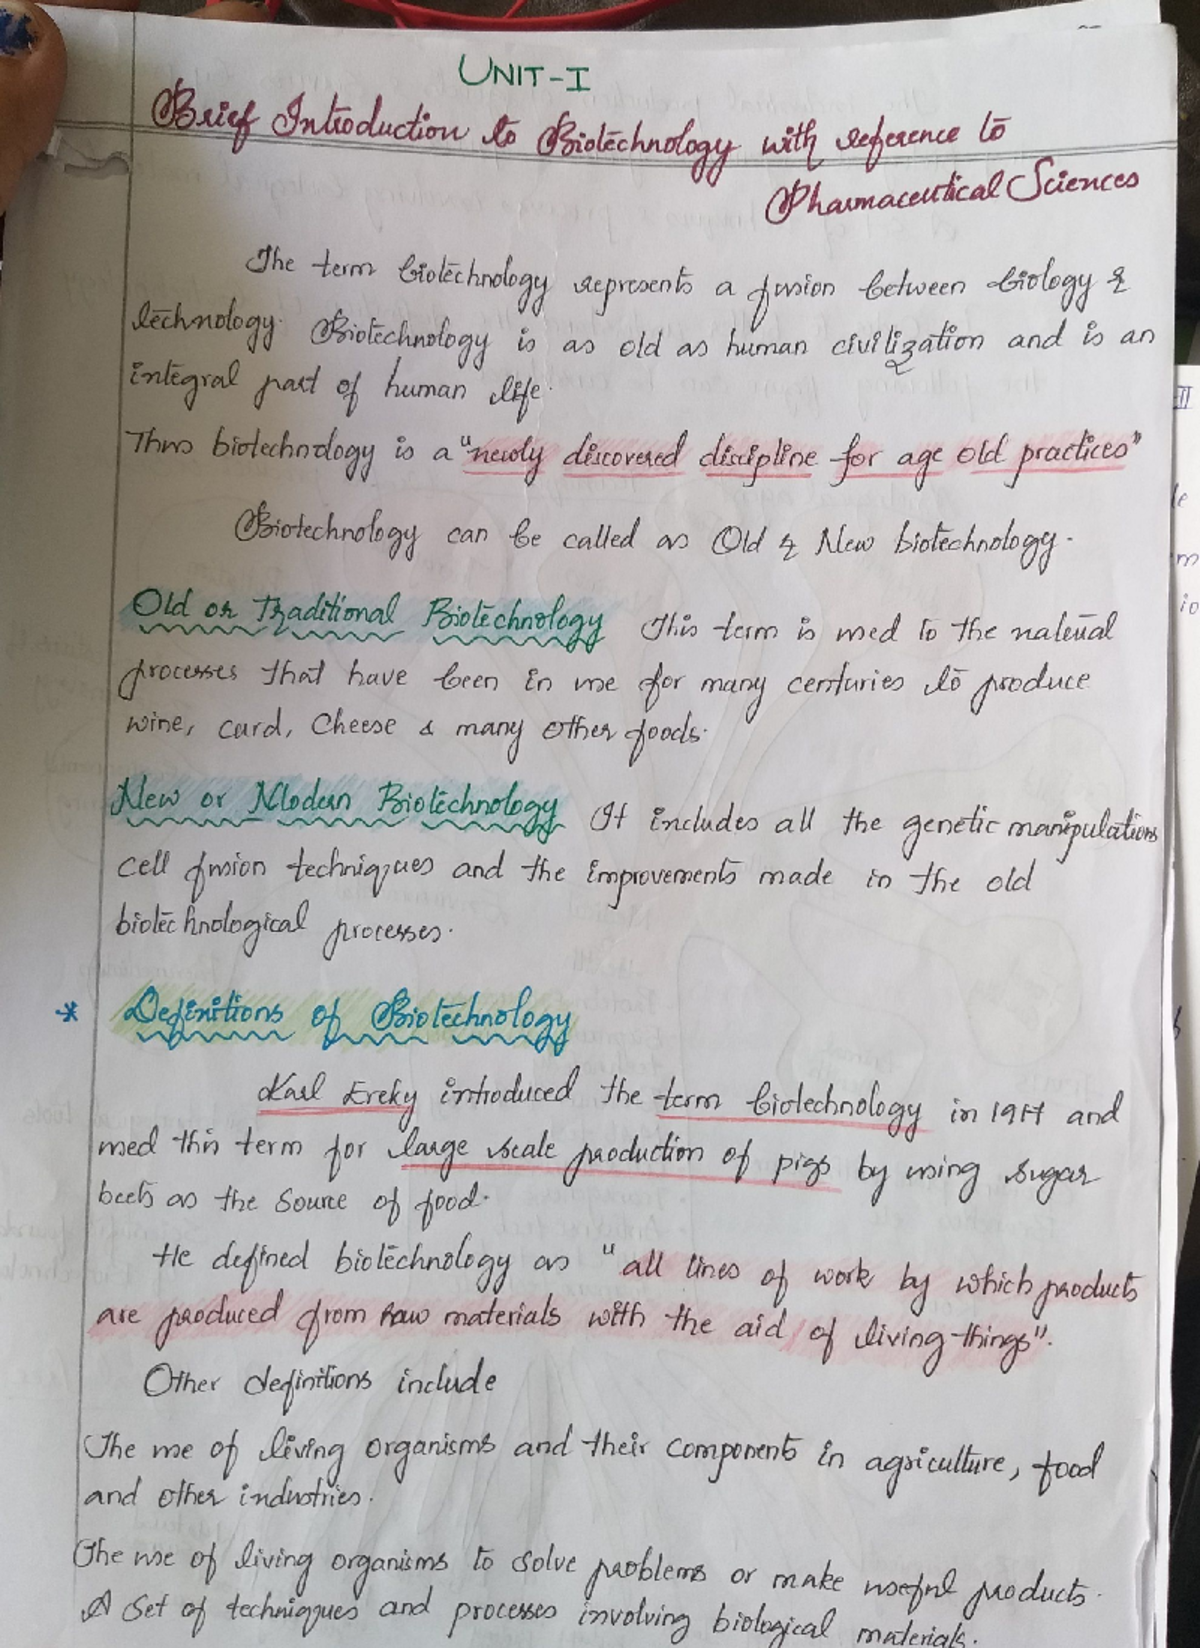 UNIT-I
Brief Introduction to Biotechnology with reference to
Pharmaceutical Sciences
The term biotechnology represents a fusion between biology &
technology. Biotechnology is as old as human civilization and is an
integral part of human life.
Thus biotechnology is a "newly discovered discipline for age old practices"
Biotechnology can be called as Old & New biotechnology.
Old or Traditional Biotechnology This term is used to the natural
processes that have been in use for many centuries to produce
wine, curd, Cheese & many other foods.
New or Modern Biotechnology It includes all the genetic manipulations
cell fusion techniques and the improvements made in the old
biotechnological processes.
* Definitions of Biotechnology
Karl Ereky introduced the term biotechnology in 1917 and
used this term for large scale production of pigs by using sugar
beets as the source of food.
He defined biotechnology as "all lines of work by which products
are produced from raw materials with the aid of living things".
Other definitions include
The use of living organisms and their components in agriculture, food
and other industries.
The use of living organisms to solve problems or make useful products.
A set of techniques and processes involving biological materials.